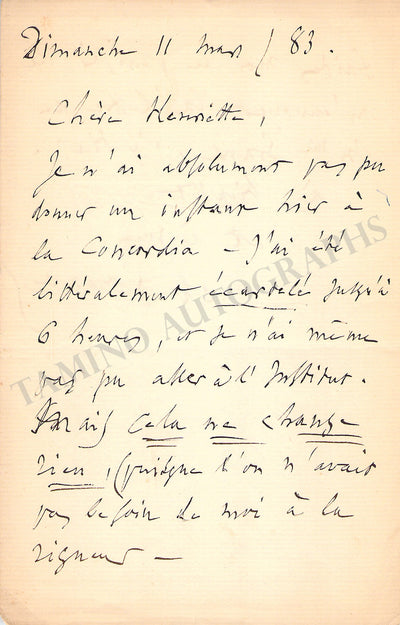 Dimanche 11 mars / 83.
Chère Henriette,
Je n'ai absolument pas pu
donner un instant hier à
la Concordia – J'ai été
littéralement écartelé jusqu'à
6 heures, et je n'ai même
pas pu aller à l'Institut.
Mais cela ne change
rien, (puisque l'on n'avait
pas besoin de moi à la
rigueur —
TAMINO AUTOGRAPHS